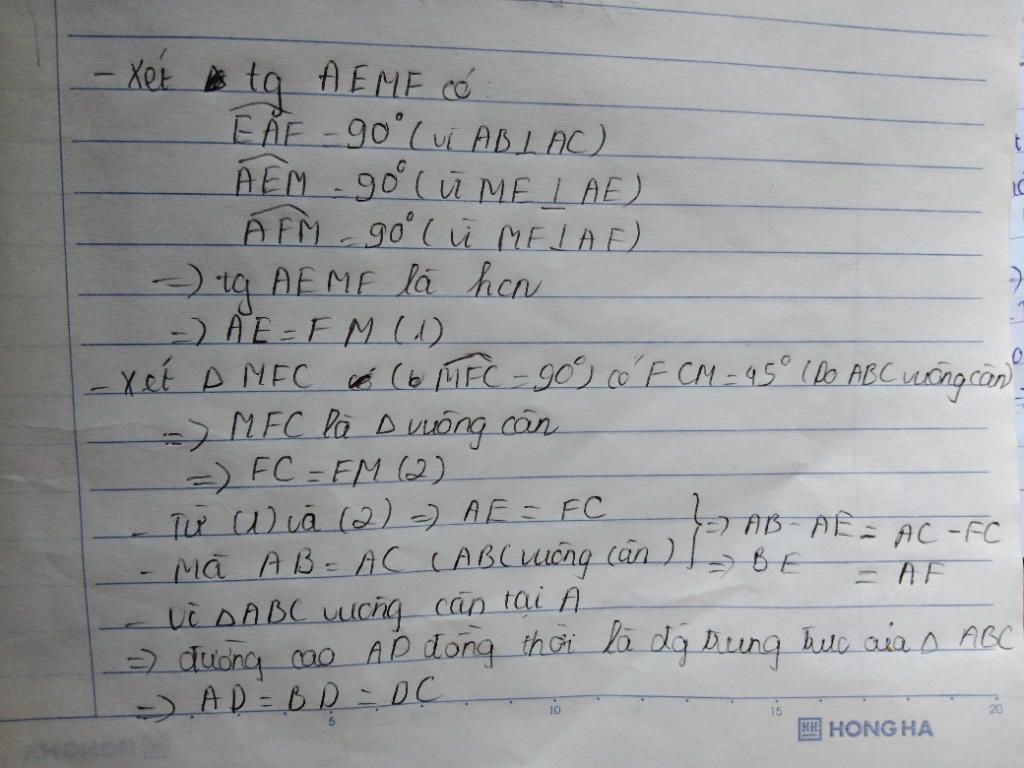 - Xét tg AEMF có
EAF = 90° (vì AB ⊥ AC)
AEM = 90° (vì ME ⊥ AE)
AFM = 90° (vì MF ⊥ AF)
=> tg AEMF là hcn
=> AE = FM (1)
- Xét Δ MFC (MFC = 90°) có FCM = 45° (Do ABC vuông cân)
=> MFC là Δ vuông cân
=> FC = FM (2)
- Từ (1) và (2) => AE = FC
- Mà AB = AC (ABC vuông cân)
} => AB - AE = AC - FC
=> BE = AF
- Vì ΔABC vuông cân tại A
=> đường cao AD đồng thời là đg trung trực của Δ ABC
=> AD = BD = DC
5 10 15 20
HONG HA